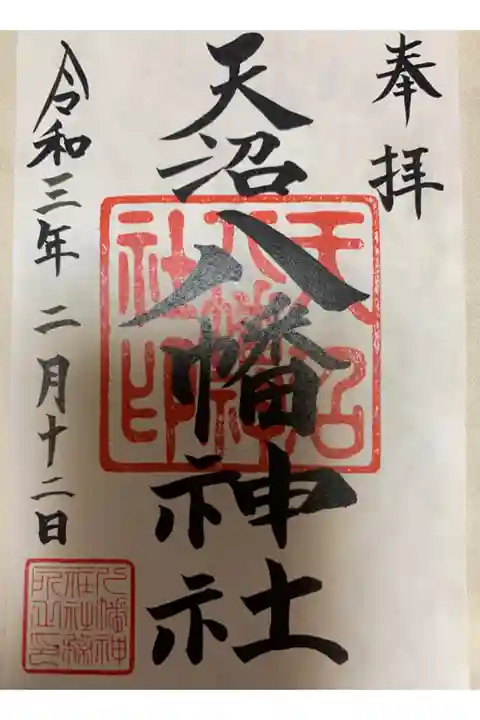 奉拝
天沼八幡神社
令和三年二月十二日
天沼八幡神社印